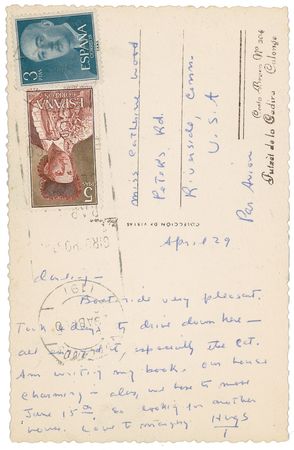 3 PTAS
ESPAÑA
CORREOS
5 PTAS
Miss Catherine Wood
Peters Rd.
Riverside, Conn.
U.S.A
Par Avion
COLECCION DE VISTAS
Nº 204
Palamós
April 29
darling –
Boat ride very pleasant.
Took 4 days to drive down here –
all enjoyed it, especially the cat.
Am writing my book. our house
charming – alas, we have to move
June 15th so looking for another
house. Love to
Hugs
T